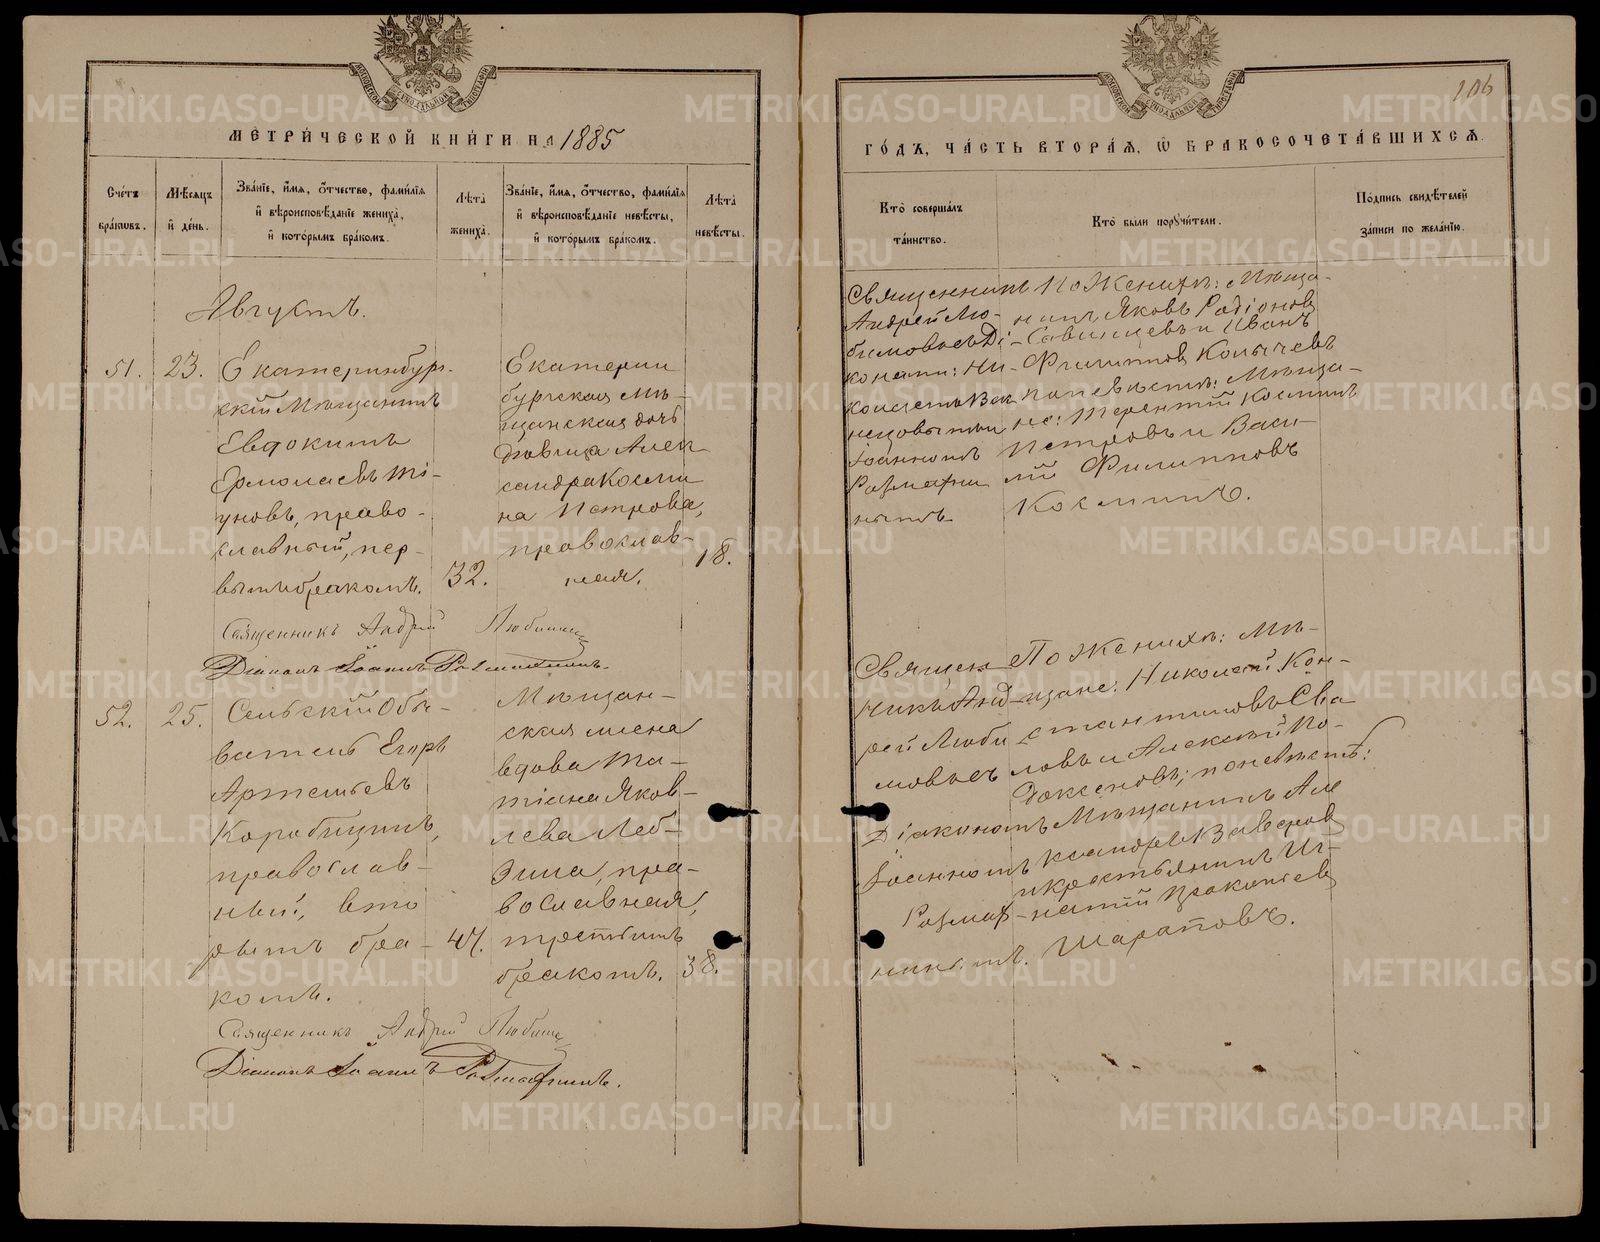 МЕТРИ́ЧЕСКОЙ КНИ́ГИ НА 1885
Сче́тъ бра́кѡвъ.
Мѣ́сѧцъ и҆ де́нь.
Зва́нїе, и҆́мѧ, ѻ҆́тчество, фами́лїѧ и҆ вѣроисповѣ́данїе жениха̀, и҆ кото́рымъ бра́комъ.
Лѣ́та жениха̀.
Зва́нїе, и҆́мѧ, ѻ҆́тчество, фами́лїѧ и҆ вѣроисповѣ́данїе невѣ́сты, и҆ кото́рымъ бра́комъ.
Лѣ́та невѣ́сты.
Августъ.
51.
23.
Екатеринбург-
скій Мѣщанинъ
Евдокимъ
Ермолаевъ Ті-
уновъ, право-
славный, пер-
вымъ бракомъ.
32.
Екатерин
бургская мѣ-
щанская дочь
дѣвица Алек
сандра Косми
на Петрова,
православ-
ная.
18.
Священникъ Андрей Любимовъ
Діаконъ Іоаннъ
52.
25.
Сельскій Обы-
ватель Егоръ
Артемьевъ
Коробицынъ,
православ-
ный, вто
рымъ бра-
комъ.
47.
Мѣщан-
ская жена
вдова Та-
тіана Яков-
лева
православная,
третьимъ
бракомъ.
38.
Священникъ Андрей Любимовъ
Діаконъ Іоаннъ
106
ГО́ДЪ, ЧА́СТЬ ВТОРА́Ѧ, Ѿ БРАКОСОЧЕТА́ВШИХСѦ.
Кто̀ соверша́лъ та́инство.
Кто̀ бы́ли порꙋчи́тели.
По́дпись свидѣ́телей за́писи по жела́нїю.
Священникъ
Андрей Лю-
бимовъ съ Ді-
кономъ: Ни-
Іоанномъ
По Женихѣ: Мѣща-
нинъ Яковъ Родіоновъ
и Иванъ
Филипповъ Колычевъ
по невѣстѣ: Мѣща-
не: Терентій Косминъ
Петровъ и Васи-
лій Филипповъ
Косминъ.
Священ-
никъ Анд-
рей Люби
мовъ съ
Діакономъ
Іоанномъ
По Женихѣ: Мѣ-
щане: Николай Кон-
стантиновъ
ловъ и Алексѣй
по невѣстѣ:
Мѣщанинъ Але
ксандръ
и крестьянинъ Иг-
натій Прокопьевъ
Шараповъ.
METRIKI.GASO-URAL.RU